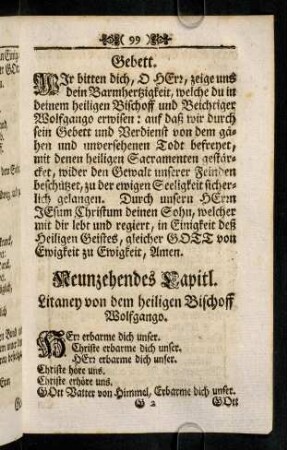 ( 99 )
Gebett.
WIr bitten dich, O HErr, zeige uns
dein Barmhertzigkeit, welche du in
deinem heiligen Bischoff und Beichtiger
Wolfgango erwisen: auf daß wir durch
sein Gebett und Verdienst von dem gä-
hen und unversehenen Todt befreyet,
mit denen heiligen Sacramenten gestär-
cket, wider den Gewalt unserer Feinden
beschützet, zu der ewigen Seeligkeit sicher-
lich gelangen. Durch unsern HErrn
JEsum Christum deinen Sohn, welcher
mit dir lebt und regiert, in Einigkeit deß
Heiligen Geistes, gleicher GOTT von
Ewigkeit zu Ewigkeit, Amen.
Neunzehendes Capitl.
Litaney von dem heiligen Bischoff
Wolfgango.
HErr erbarme dich unser.
Christe erbarme dich unser.
HErr erbarme dich unser.
Christe höre uns.
Christe erhöre uns.
GOtt Vatter von Himmel, Erbarme dich unser.
G 2 GOtt